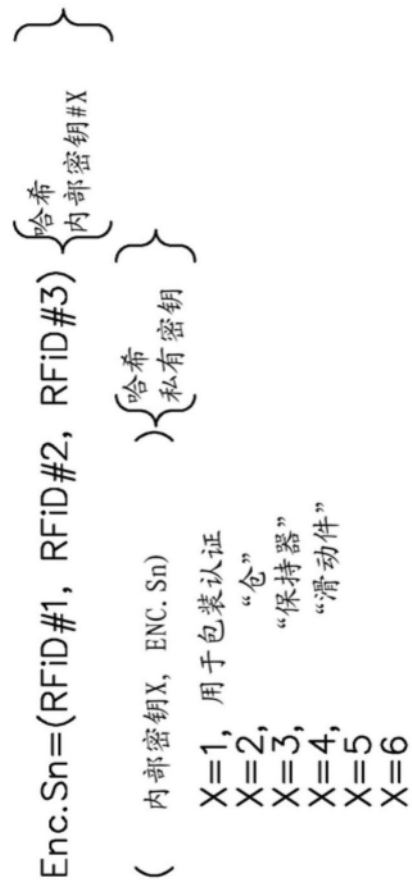 Enc.Sn=(RFiD#1, RFiD#2, RFiD#3){哈希}
内部密钥#X
( 内部密钥X, ENC.Sn) ){哈希}
私有密钥
X=1, 用于包装认证
X=2, “仓”
X=3, “保持器”
X=4, “滑动件”
X=5
X=6